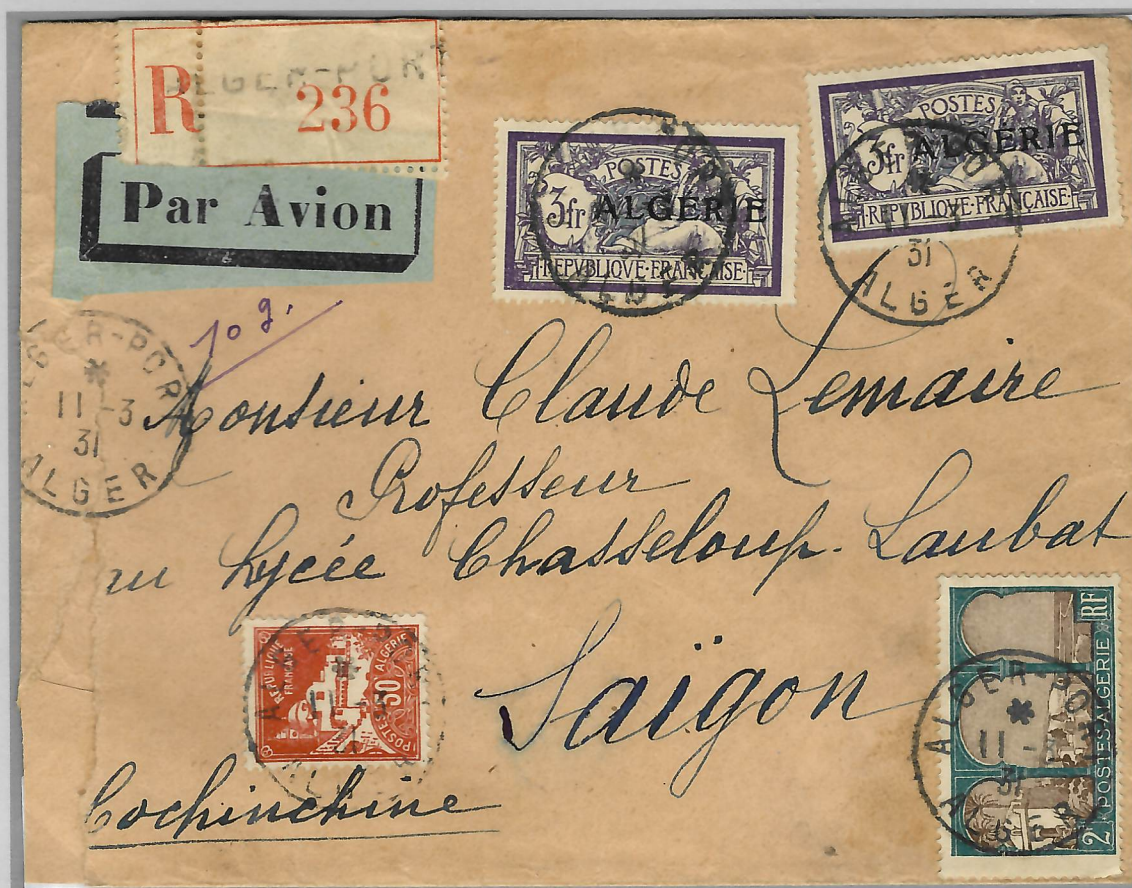 R ALGER-PORT
236
Par Avion
10 g.
POSTES
3fr ALGÉRIE
REPVBLIQVE·FRANÇAISE
POSTES
3fr ALGÉRIE
REPVBLIQVE·FRANÇAISE
ALGER
31
ALGER-PORT
11-3
31
ALGER
Monsieur Claude Lemaire
Professeur
au Lycée Chasseloup-Laubat
Saïgon
Cochinchine
RÉPUBLIQUE
FRANÇAISE
50
POSTES ALGÉRIE
RF
2 POSTES-ALGERIE
ALGER-PORT
11-3
31
ALGER